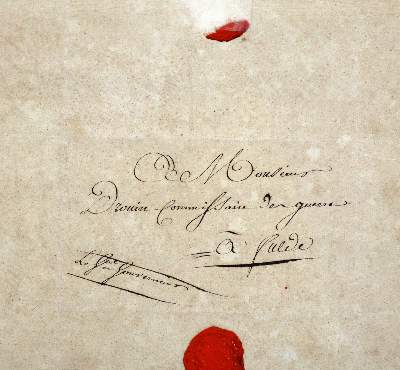 A Monsieur
Drouin Commissaire des guerres
à Fulde
Le Gal Gouverneur